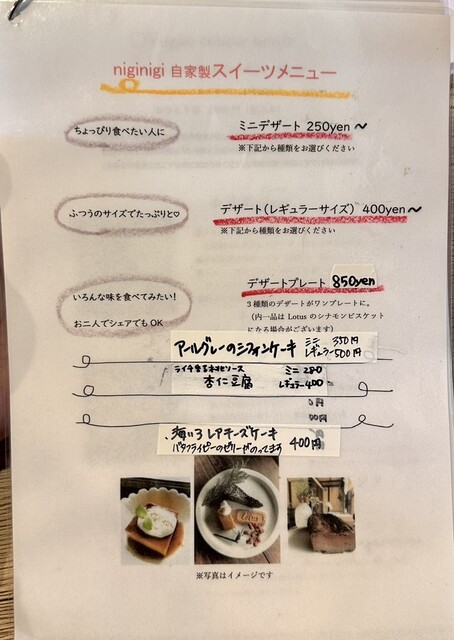 niginigi 自家製スイーツメニュー
ちょっぴり食べたい人に
ミニデザート 250yen～
※下記から種類をお選びください
ふつうのサイズでたっぷりと♡
デザート(レギュラーサイズ) 400yen～
※下記から種類をお選びください
いろんな味を食べてみたい!
お二人でシェアでも OK
デザートプレート 850yen
3種類のデザートがワンプレートに。
(内一品は Lotus のシナモンビスケット
になる場合がございます)
アールグレーのシフォンケーキ ミニ 350円
レギュラー500円
ミニ 280
杏仁豆腐 レギュラー400
0円
00円
海いろ レアチーズケーキ 400円
バタフライピーのゼリーがのってます
※写真はイメージです